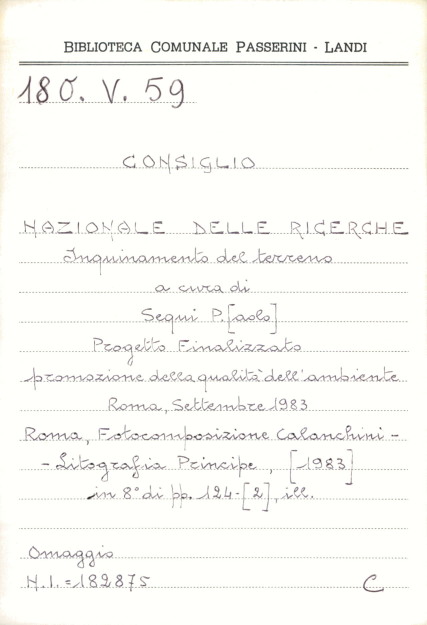 BIBLIOTECA COMUNALE PASSERINI - LANDI
180. V. 59
CONSIGLIO
NAZIONALE DELLE RICERCHE
Inquinamento del terreno
a cura di
Sequi P.[aolo]
Progetto Finalizzato
promozione della qualità dell'ambiente
Roma, Settembre 1983
Roma, Fotocomposizione Calanchini -
- Litografia Principe, [1983]
in 8° di pp. 124-[2], ill.
Omaggio
N.I. = 182875 C